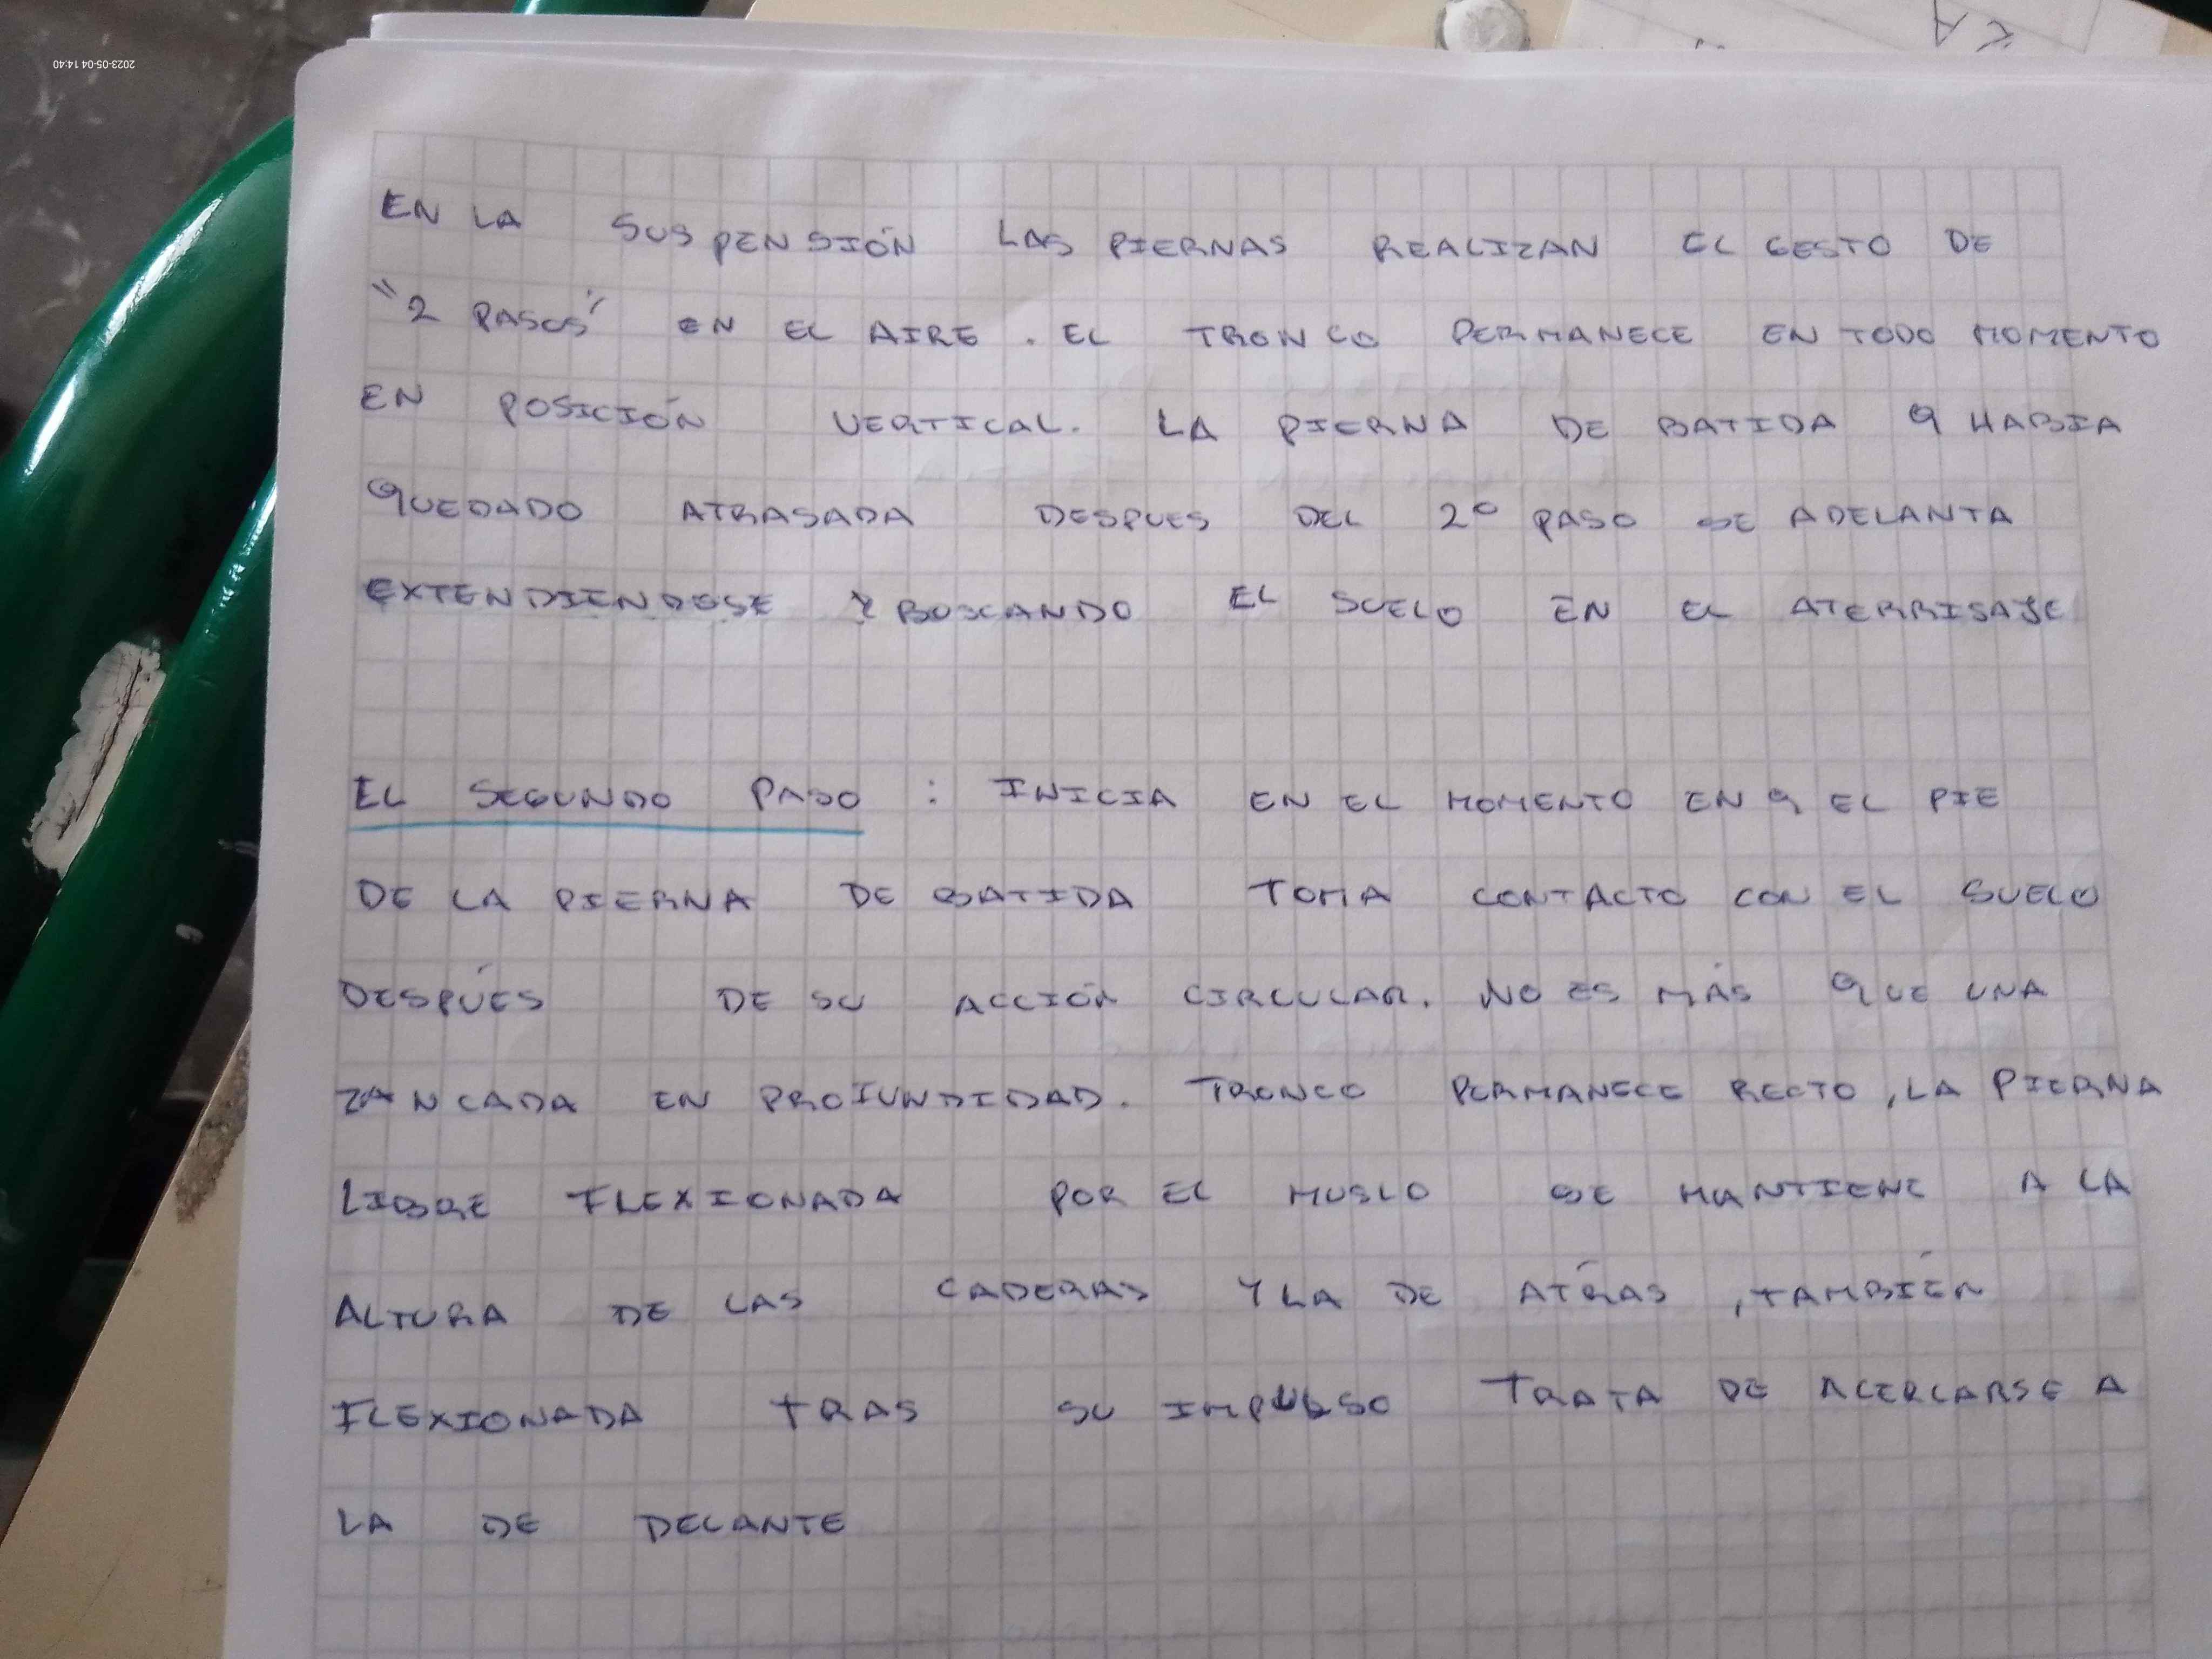 2023-05-04 14:40
EN LA SUSPENSIÓN LAS PIERNAS REALIZAN EL GESTO DE
"2 PASOS" EN EL AIRE. EL TRONCO PERMANECE EN TODO MOMENTO
EN POSICIÓN VERTICAL. LA PIERNA DE BATIDA Q HABIA
QUEDADO ATRASADA DESPUES DEL 2º PASO SE ADELANTA
EXTENDIENDOSE Y BUSCANDO EL SUELO EN EL ATERRISAJE
EL SEGUNDO PASO : INICIA EN EL MOMENTO EN Q EL PIE
DE LA PIERNA DE BATIDA TOMA CONTACTO CON EL SUELO
DESPUÉS DE SU ACCIÓN CIRCULAR. NO ES MÁS QUE UNA
ZANCADA EN PROFUNDIDAD. TRONCO PERMANECE RECTO, LA PIERNA
LIBRE FLEXIONADA POR EL MUSLO SE MANTIENE A LA
ALTURA DE LAS CADERAS Y LA DE ATŔAS, TAMBIÉN
FLEXIONADA TRAS SU IMPULSO TRATA DE ACERCARSE A
LA DE DELANTE